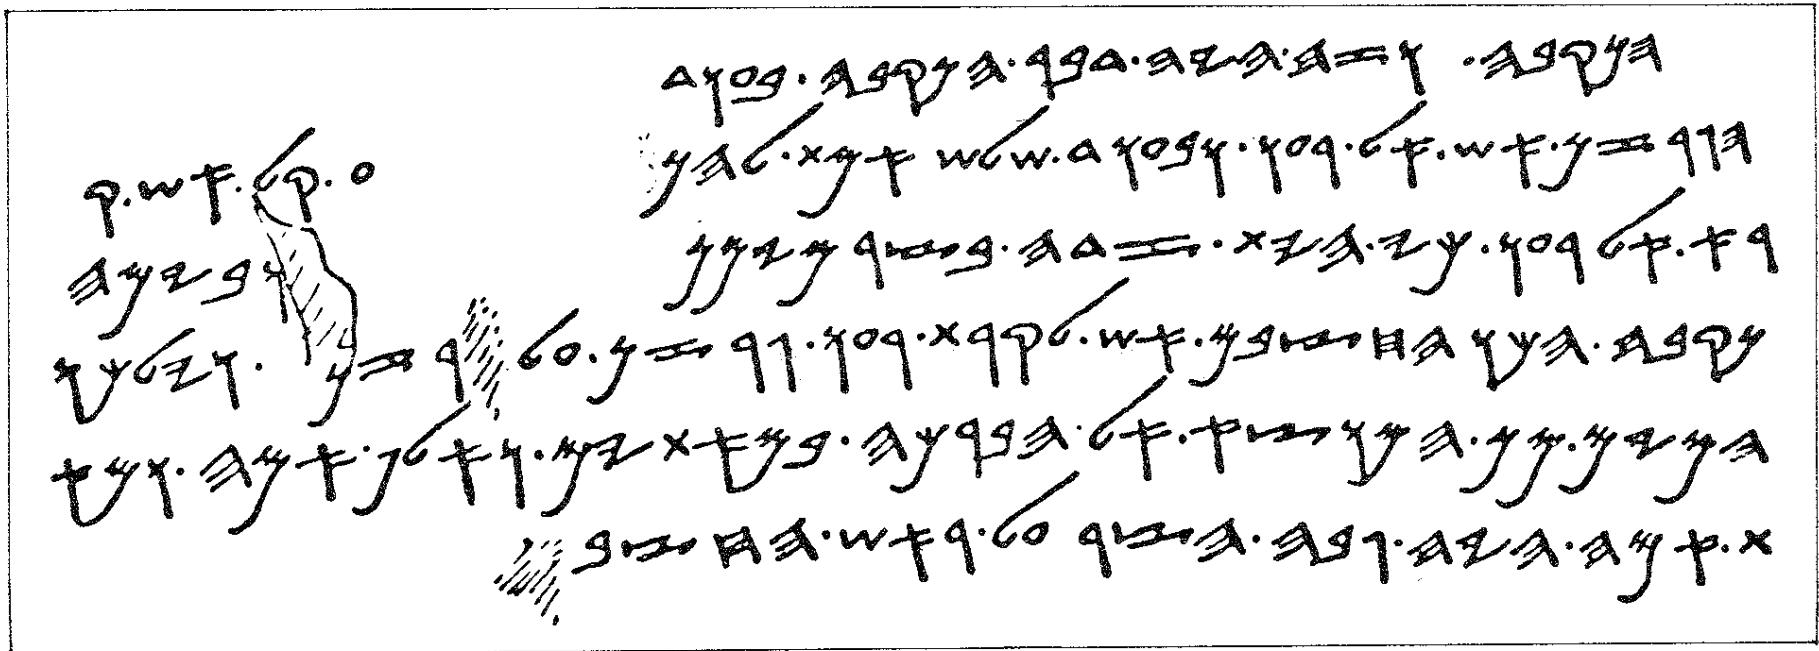 𐤄𐤍𐤒𐤁𐤄 . 𐤅𐤆𐤄.𐤄𐤉𐤄.𐤃𐤁𐤓.𐤄𐤍𐤒𐤁𐤄.𐤁𐤏𐤅𐤃
𐤄𐤂𐤓𐤆𐤍.𐤀𐤔.𐤀𐤋.𐤓𐤏𐤅.𐤅𐤁𐤏𐤅𐤃.𐤔𐤋𐤔 𐤀𐤌𐤕.𐤋𐤄𐤍 𐤏.𐤒𐤋.𐤀𐤔.𐤒
𐤓𐤀.𐤀𐤋 𐤓𐤏𐤅.𐤊𐤉.𐤄𐤉𐤕.𐤆𐤃𐤄.𐤁𐤑𐤓 𐤌𐤉𐤌𐤍 𐤅𐤁𐤉𐤌𐤄
𐤍𐤒𐤁𐤄.𐤄𐤊𐤅 𐤄𐤇𐤑𐤁𐤌.𐤀𐤔.𐤋𐤒𐤓𐤕.𐤓𐤏𐤅.𐤂𐤓𐤆𐤍.𐤏𐤋 𐤓𐤆𐤍.𐤅𐤉𐤋𐤊𐤅
𐤄𐤌𐤉𐤌.𐤌𐤍.𐤄𐤌𐤅𐤑𐤀.𐤀𐤋.𐤄𐤁𐤓𐤊𐤄.𐤁𐤌𐤀𐤕𐤉𐤌.𐤅𐤀𐤋𐤐.𐤀𐤌𐤄.𐤅𐤌𐤀
𐤕.𐤀𐤌𐤄.𐤄𐤉𐤄.𐤂𐤁𐤄.𐤄𐤑𐤓 𐤏𐤋.𐤓𐤀𐤔.𐤄𐤇𐤑𐤁